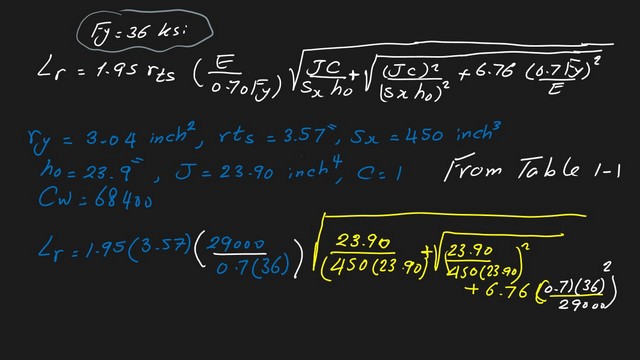 Fy = 36 ksi
Lr = 1.95 rts (E / 0.70Fy) √(JC / Sx ho + √((JC)² / (Sx ho)² + 6.76 (0.7Fy / E)²
ry = 3.04 inch², rts = 3.57", Sx = 450 inch³
ho = 23.9", J = 23.90 inch⁴, C = 1 From Table 1-1
Cw = 68400
Lr = 1.95 (3.57) (29000 / 0.7(36)) √(23.90 / 450(23.90) + √(23.90 / 450(23.90))²
+ 6.76 ((0.7)(36) / 29000)²